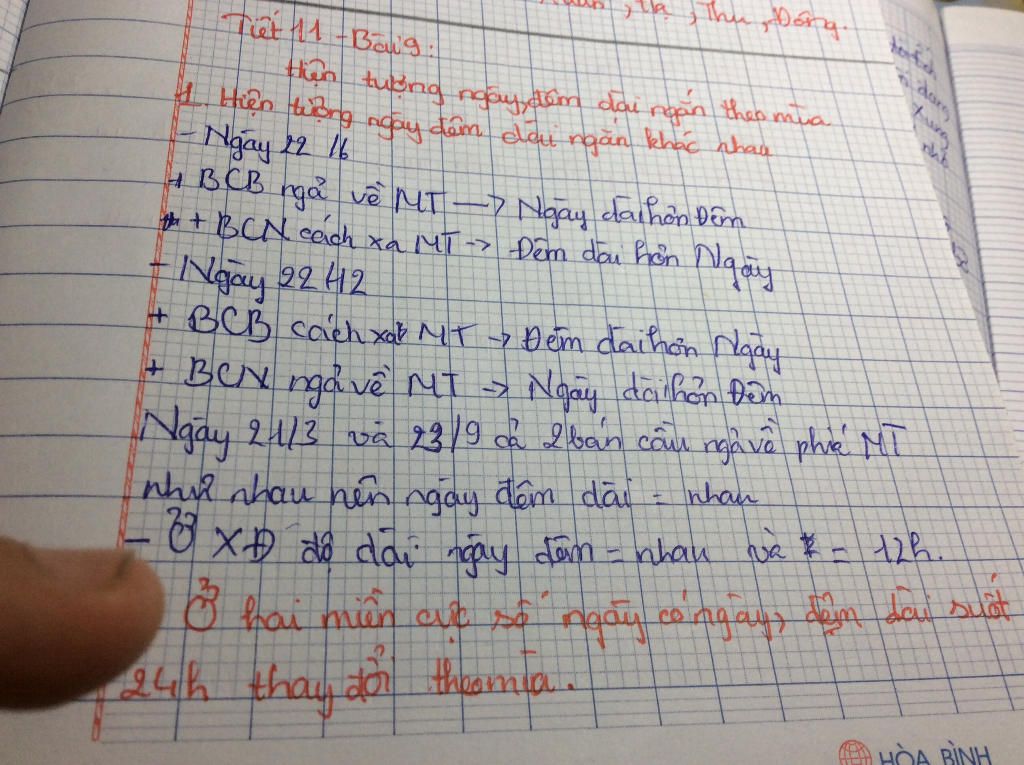 , Hạ, Thu, Đông.
Tiết 11 - Bài 9:
Hiện tượng ngày, đêm dài ngắn theo mùa
1 Hiện tượng ngày đêm dài ngắn khác nhau
- Ngày 22/6
+ BCB ngả về MT → Ngày dài hơn Đêm
+ BCN cách xa MT → Đêm dài hơn Ngày
- Ngày 22/12
+ BCB cách xa MT → Đêm dài hơn Ngày
+ BCN ngả về MT → Ngày dài hơn Đêm
Ngày 21/3 và 23/9 cả 2 bán cầu ngả về phía MT
như nhau nên ngày đêm dài = nhau
- Ở XĐ độ dài ngày đêm = nhau và = 12h.
Ở hai miền cực số ngày có ngày, đêm dài suốt
24h thay đổi theo mùa.
HÒA BÌNH